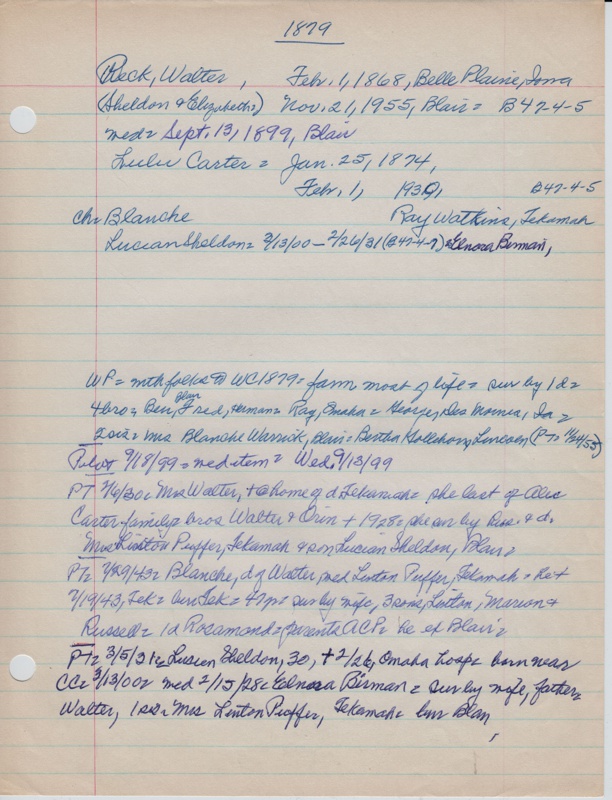 1879
Reck, Walter, Feb. 1, 1868, Belle Plaine, Iowa
(Sheldon & Elizabeth=) Nov. 21, 1955, Blair= B47-4-5
med= Sept. 13, 1899, Blair
Lulu Carter = Jan. 25, 1874,
Feb. 1, 1930, B47-4-5
ch= Blanche Ray Watkins, Tekamah
Lucian Sheldon= 3/13/00 – 2/26/31 (B47-4-7) = Elnora Birman,
WP= mth folks to WC 1879= farm most of life= sur by 1d=
4 bro= Ben, Fred, Blair Herman= Ray, Omaha= George, Des Moines, Ia=
2 sis= Mrs Blanche Warrick, Blair= Bertha Lincoln (PT= 11/24/55)
Pilot 9/18/99= med item= Wed. 9/13/99
PT 2/6/30= Mrs Walter, + @ home of d Tekamah= she last of Alec
Carter family= bros Walter & Orin + 1928= she sur by hus. & d.
Mrs Linton Puffer, Tekamah & son Lucian Sheldon, Blair=
PT= 7/29/43= Blanche, d of Walter, med Linton Puffer, Tekamah= he +
7/19/43, Tek= bur Tek= 47 yr= sur by wife, 3 sons, Linton, Marion &
Russell= 1d Rosamond= parents ACP= he of Blair=
PT= 3/5/31= Lucien Sheldon, 30, + 2/26, Omaha hosp= born near
CC= 3/13/00= med 2/15/28= Elnora Birman= sur by wife, father=
Walter, 1 sis= Mrs Linton Puffer, Tekamah= bur Blair,